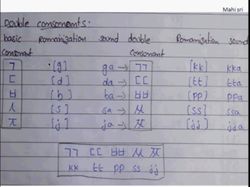 Mahi sri
Double consonants:
basic Romanization sound double Romanisation sound
Consonant Consonant
ㄱ [g] ga → ㄲ [kk] kka
ㄷ [d] da → ㄸ [tt] tta
ㅂ [b] ba → ㅃ [pp] ppa
ㅅ [s] sa → ㅆ [ss] ssa
ㅈ [j] ja → ㅉ [jj] jja
ㄲ ㄸ ㅃ ㅆ ㅉ
kk tt pp ss jj